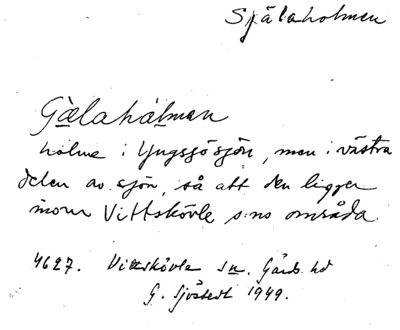 Själaholmen
Gälahålman
holme i Yngsjösjön, men i västra
delen av sjön, så att den ligger
inom Vittskövle s:ns område.
4627. Vittskövle sn. Gärds hd
G. Sjöstedt 1949.